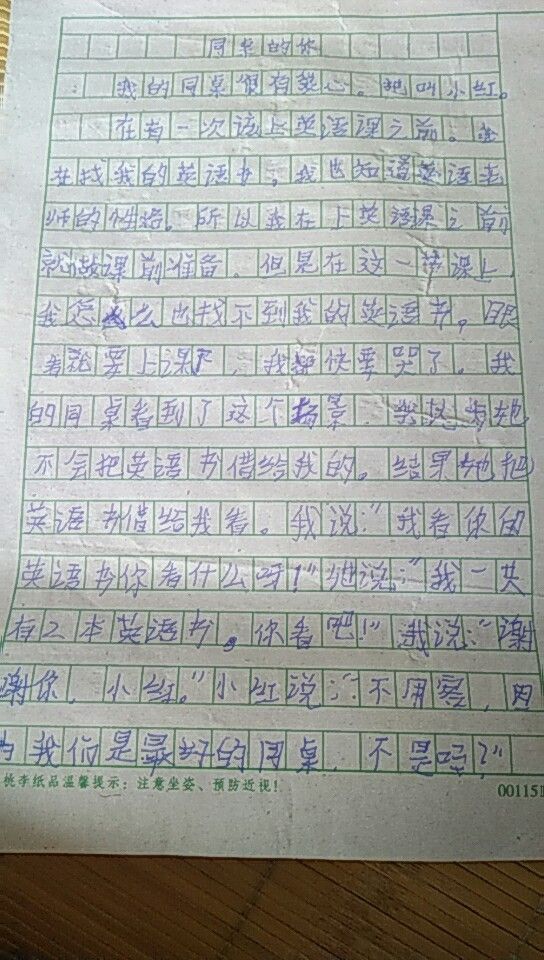 同桌的你
我的同桌很有爱心。她叫小红。
在有一次该上英语课之前。我
在找我的英语书，我也知道英语老
师的性格。所以我在上英语课之前
就做课前准备。但是在这一节课上，
我怎么也找不到我的英语书，眼
看就要上课了，我都快要哭了。我
的同桌看到了这个场景，
不会把英语书借给我的。结果她把
英语书借给我看。我说："我看你的
英语书你看什么呀！"她说："我一共
有2本英语书。你看吧！"我说："谢
谢你，小红。"小红说："不用客，因
为我们是最好的同桌，不是吗？"
桃李纸品温馨提示：注意坐姿、预防近视！
00115